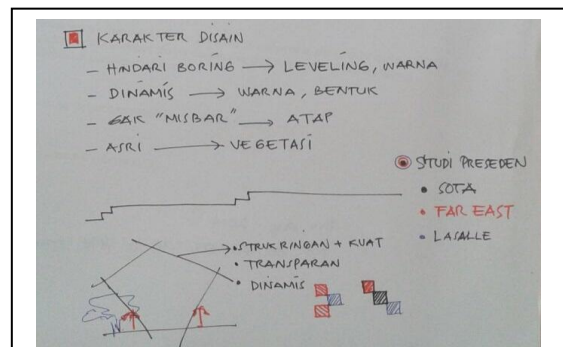 KARAKTER DISAIN
- HINDARI BORING → LEVELING, WARNA
- DINAMIS → WARNA, BENTUK
- GAK "MISBAR" → ATAP
- ASRI → VEGETASI
STUDI PRESEDEN
• SOTA
• FAR EAST
• LASALLE
• STRUK RINGAN + KUAT
• TRANSPARAN
• DINAMIS